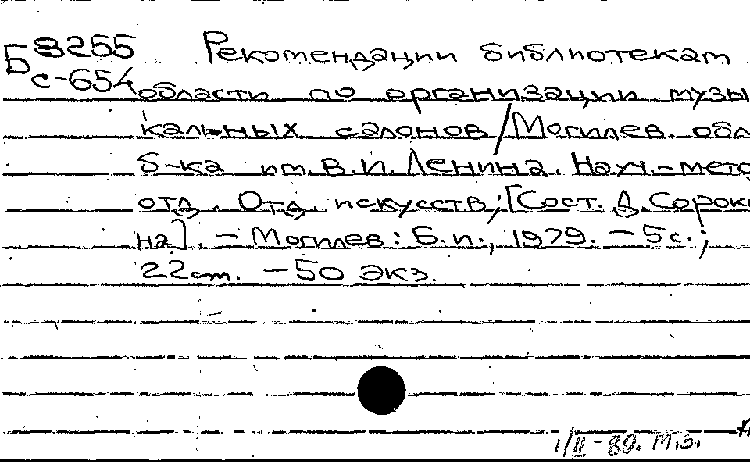 Б 8255
с-654
Рекомендации библиотекам
области по организации музы
кальных салонов / Могилев. обл
б-ка им. В. И. Ленина. Науч.-мето
отд. Отд. искусств; [Сост. Д. Сороки
на]. – Могилев: Б. и., 1979. – 5 с.;
22 см. – 50 экз.
1/II - 80. М.З.